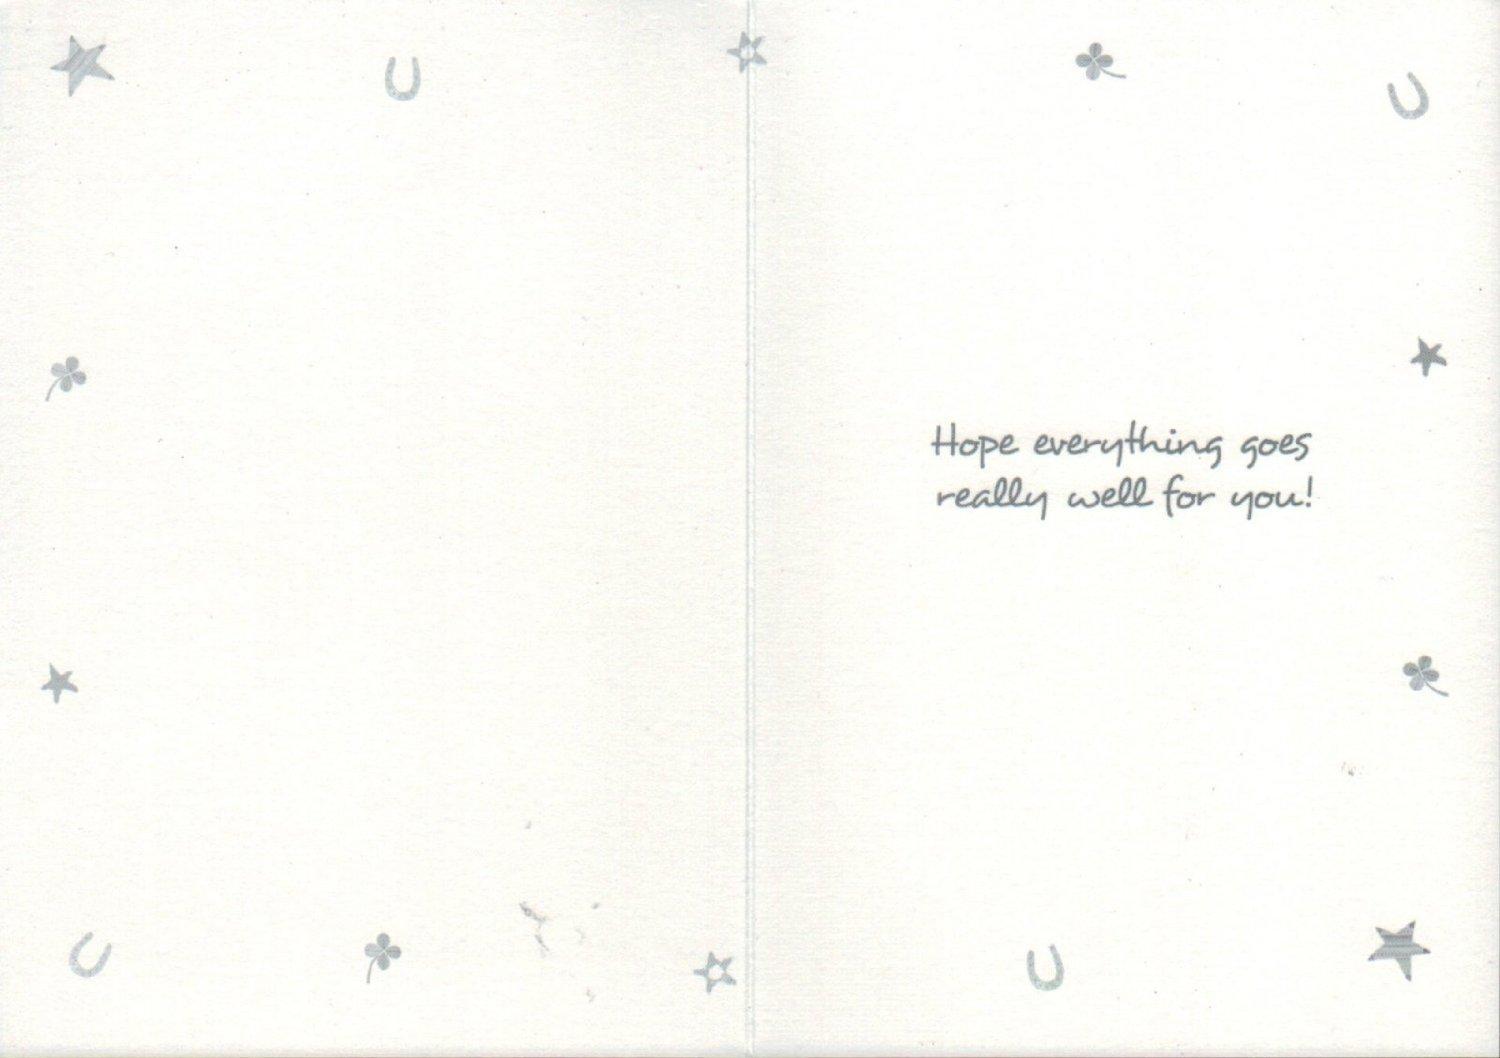 Hope everything goes
really well for you!